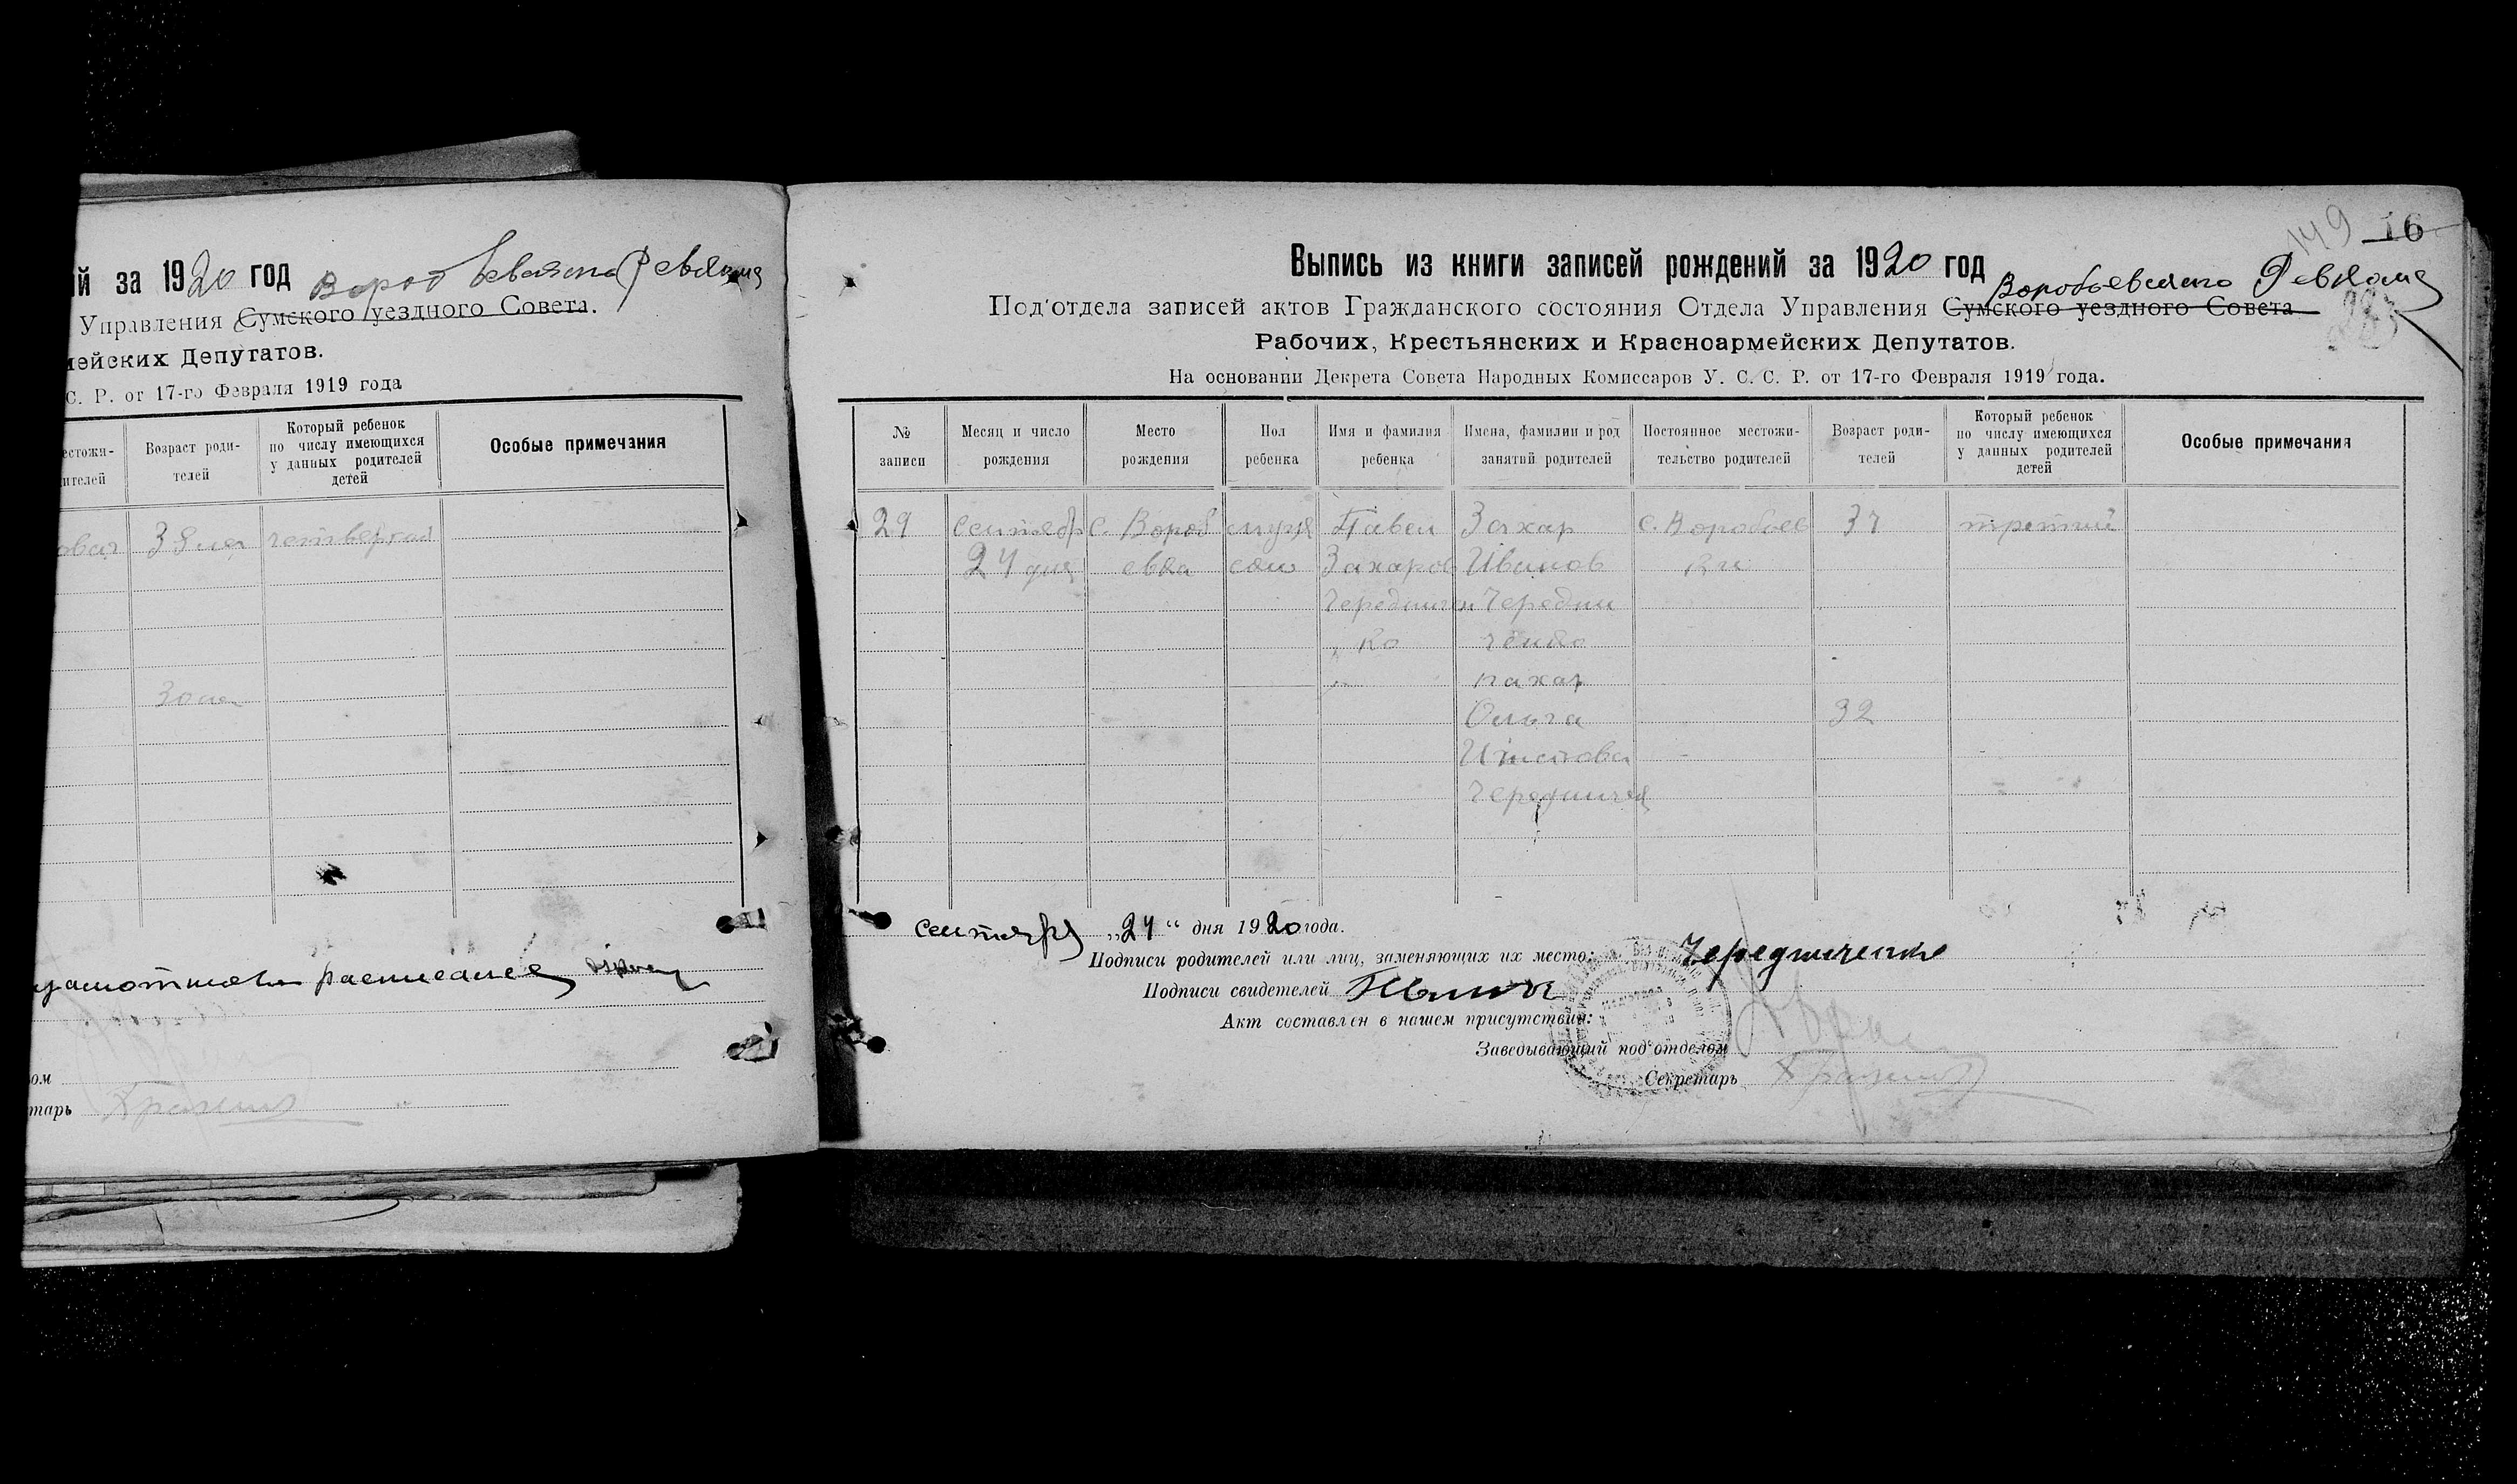 й за 1920 год Воробьевского Ревкома
Управления Сумского уездного Совета.
мейских Депутатов.
С. Р. от 17-го Февраля 1919 года
естожи-
ителей
Возраст роди-
телей
Который ребенок
по числу имеющихся
у данных родителей
детей
Особые примечания
30 лет
расписался
ом
тарь
149 16
Выпись из книги записей рождений за 1920 год
Воробьевского Ревкома
Под'отдела записей актов Гражданского состояния Отдела Управления Сумского уездного Совета
Рабочих, Крестьянских и Красноармейских Депутатов.
На основании Декрета Совета Народных Комиссаров У. С. С. Р. от 17-го Февраля 1919 года.
№
записи
Месяц и число
рождения
Место
рождения
Пол
ребенка
Имя и фамилия
ребенка
Имена, фамилии и род
занятий родителей
Постоянное местожи-
тельство родителей
Возраст роди-
телей
Который ребенок
по числу имеющихся
у данных родителей
детей
Особые примечания
29 сентябр с. Вороб мужс Павел Захар с. Воробьев 37 третий
24 дня евка Захаров Иванов ки
Чередничен Чередни
ко ченко
пахар
Ольга 32
Чередничен
сентября „24“ дня 1920 года.
Подписи родителей или лиц, заменяющих их место: Чередниченко
Подписи свидетелей
Акт составлен в нашем присутствии:
Заведывающий под'отделом
Секретарь